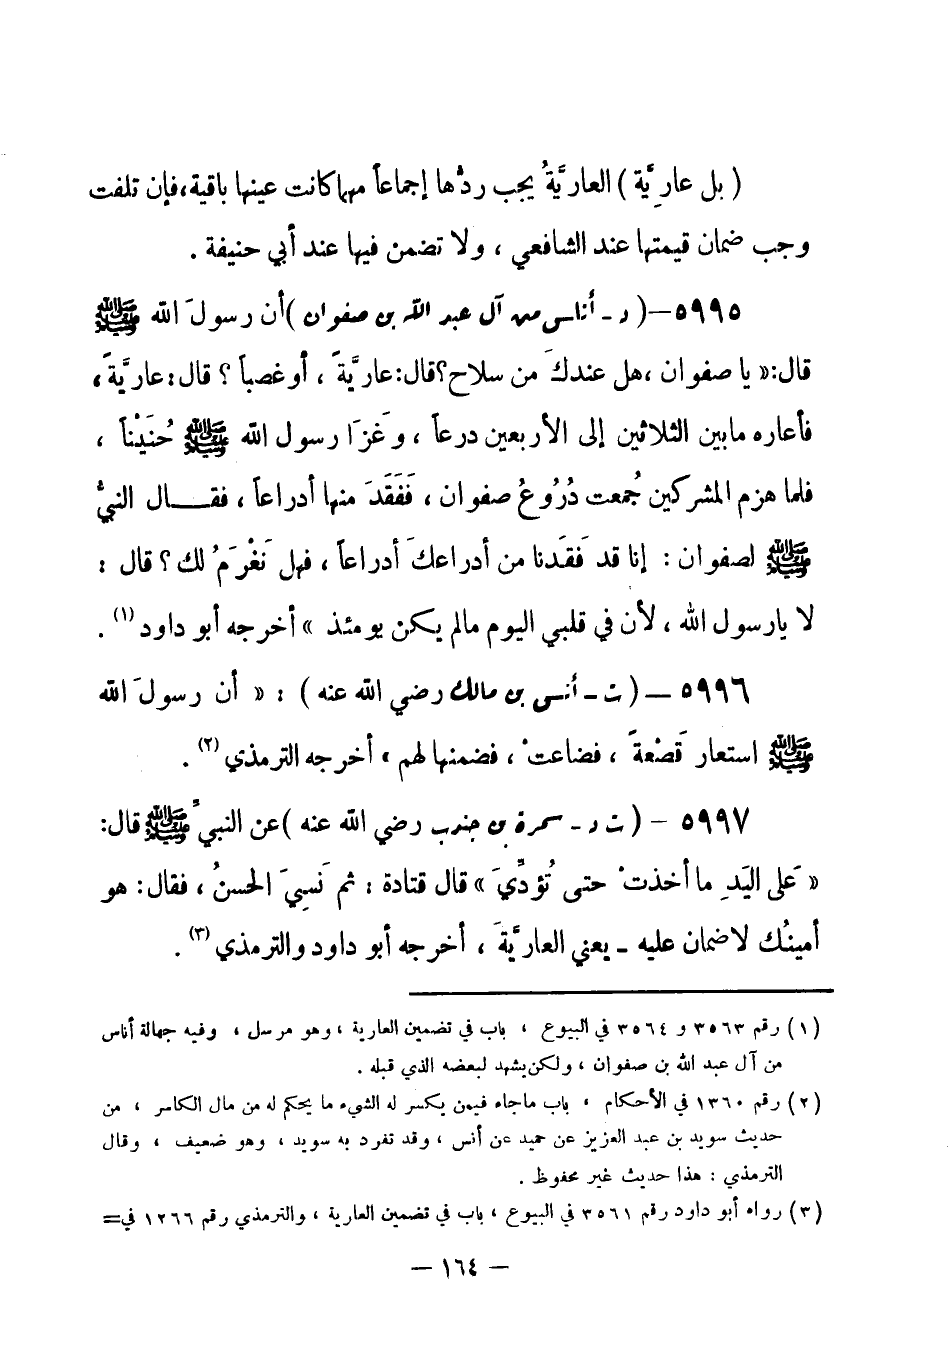 ( بل عارِيَّة ) العاريَّةُ يجب ردُّها إجماعاً مهما كانت عينها باقية، فإن تلفت
وجب ضمان قيمتها عند الشافعي ، ولا تضمن فيها عند أبي حنيفة .
٥٩٩٥ – ( د - أناس من آل عبد الله بن صفوان ) أن رسولَ الله ﷺ
قال: « يا صفوان ، هل عندكَ من سلاح؟ قال: عاريَّةً ، أو غصباً ؟ قال: عاريَّةً ،
فأعاره مابين الثلاثين إلى الأربعين درعاً ، وغَزَا رسول الله ﷺ حُنَيْناً ،
فلما هزم المشركين جُمعت دُرُوعُ صفوان ، فَفَقَدَ منها أدراعاً ، فقـــال النبيُّ
ﷺ لصفوان : إنا قد فَقَدنا من أدراعكَ أدراعاً ، فهل نَغْرَمُ لك ؟ قال :
لا يارسول الله ، لأن في قلبي اليوم مالم يكن يومئذ » أخرجه أبو داود (١) .
٥٩٩٦ – ( ت - أنس بن مالك رضي الله عنه ) : « أن رسولَ الله
ﷺ استعار قَصْعَةً ، فضاعتْ ، فضمنها لهم » أخرجه الترمذي (٢) .
٥٩٩٧ – ( ت د - سمرة بن جندب رضي الله عنه ) عن النبيِّ ﷺ قال:
« عَلى اليَدِ ما أخذتْ حتى تُؤدِّيَ » قال قتادة : ثم نَسِيَ الحسنُ ، فقال: هو
أمينُك لا ضمان عليه - يعني العاريَّةَ ، أخرجه أبو داود والترمذي (٣) .
(١) رقم ٣٥٦٣ و ٣٥٦٤ في البيوع ، باب في تضمين العارية ، وهو مرسل ، وفيه جهالة أناس
من آل عبد الله بن صفوان ، ولكن يشهد لبعضه الذي قبله .
(٢) رقم ١٣٦٠ في الأحكام ، باب ماجاء فيمن يكسر له الشيء ما يحكم له من مال الكاسر ، من
حديث سويد بن عبد العزيز عن حميد عن أنس ، وقد تفرد به سويد ، وهو ضعيف ، وقال
الترمذي : هذا حديث غير محفوظ .
(٣) رواه أبو داود رقم ٣٥٦١ في البيوع ، باب في تضمين العارية ، والترمذي رقم ١٢٦٦ في=
– ١٦٤ –